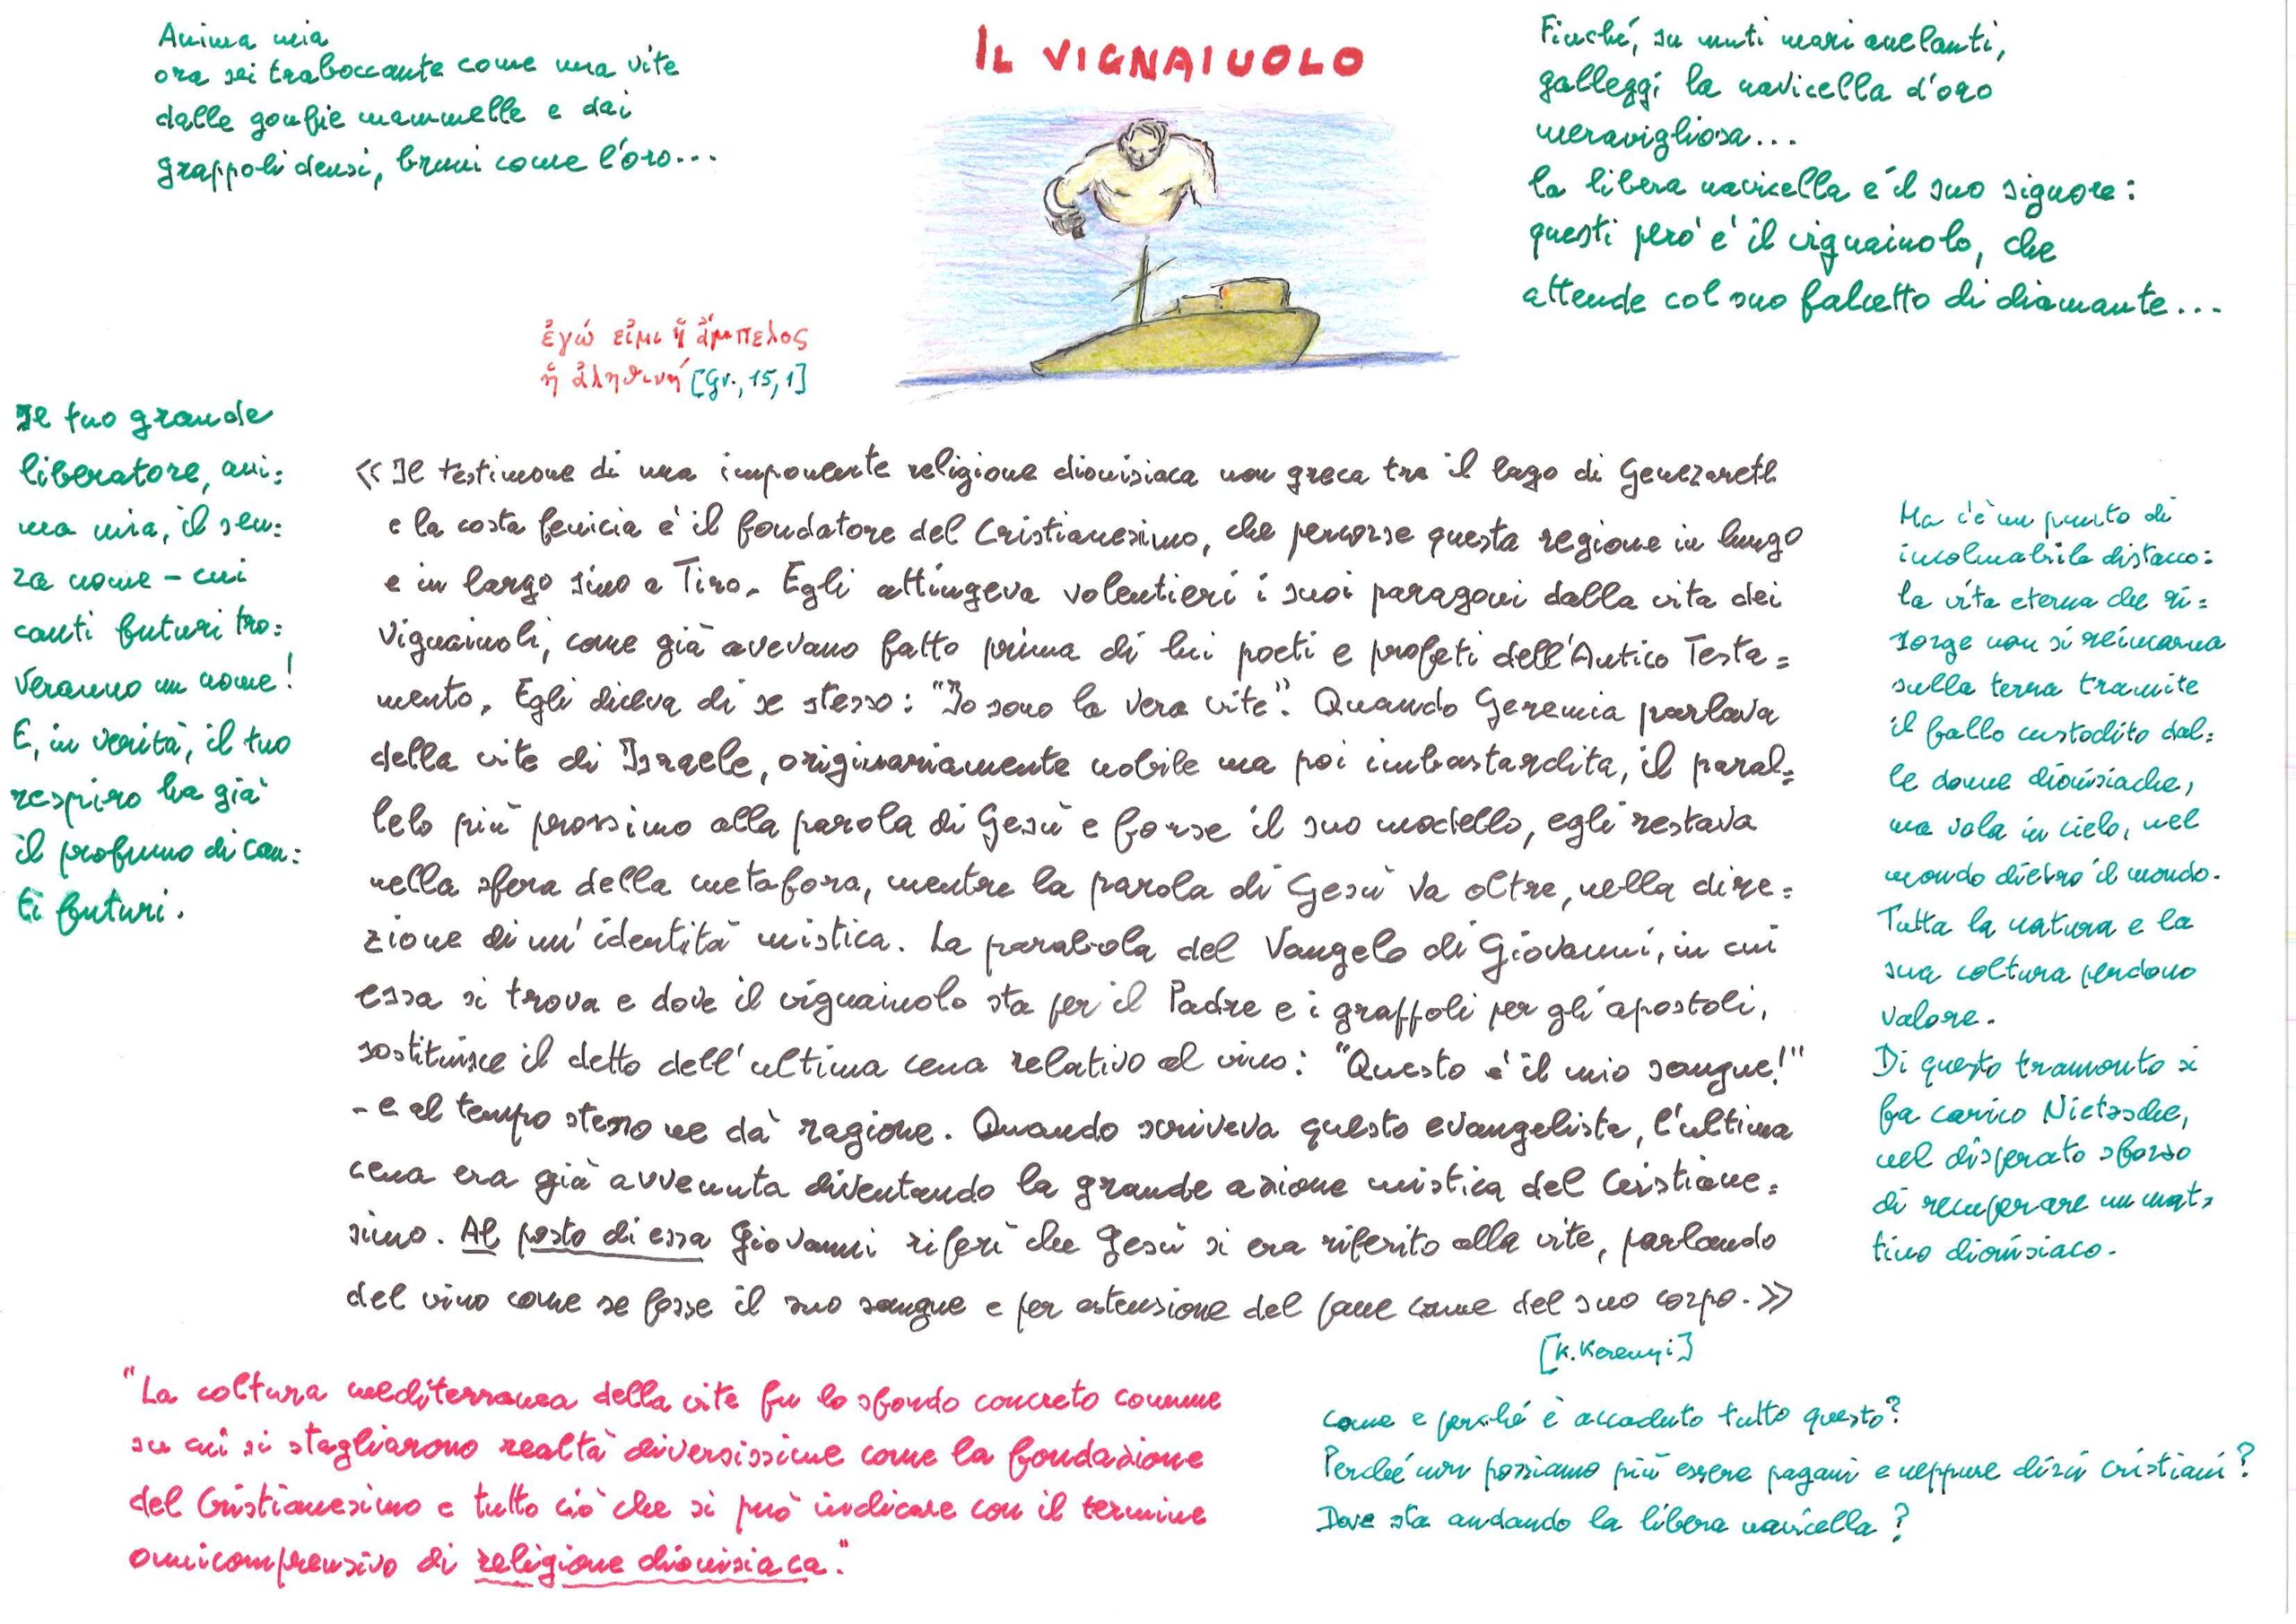 IL VIGNAIUOLO
Anima mia
ora sei traboccante come una vite
dalle gonfie mammelle e dai
grappoli densi, bruni come l'oro...
Finché, su muti mari anelanti,
galleggi la navicella d'oro
meravigliosa...
la libera navicella e il suo signore:
questi però è il vignaiuolo, che
attende col suo falcetto di diamante...
ἐγώ εἰμι ἡ ἄμπελος
ἡ ἀληθινή [Gv., 15,1]
Il tuo grande
liberatore, ani=
ma mia, il sen=
za nome – cui
canti futuri tro=
veranno un nome!
E, in verità, il tuo
respiro ha già
il profumo di can=
ti futuri.
«Il testimone di una imponente religione dionisiaca non greca tra il lago di Genezareth
e la costa fenicia è il fondatore del Cristianesimo, che percorse questa regione in lungo
e in largo sino a Tiro. Egli attingeva volentieri i suoi paragoni dalla vita dei
vignaiuoli, come già avevano fatto prima di lui poeti e profeti dell'Antico Testa=
mento. Egli diceva di se stesso: "Io sono la vera vite". Quando Geremia parlava
della vite di Israele, originariamente nobile ma poi imbastardita, il paral=
lelo più prossimo alla parola di Gesù e forse il suo modello, egli restava
nella sfera della metafora, mentre la parola di Gesù va oltre, nella dire=
zione di un'identità mistica. La parabola del Vangelo di Giovanni, in cui
essa si trova e dove il vignaiuolo sta per il Padre e i grappoli per gli apostoli,
sostituisce il detto dell'ultima cena relativo al vino: "Questo è il mio sangue!"
– e al tempo stesso ne dà ragione. Quando scriveva questo evangelista, l'ultima
cena era già avvenuta diventando la grande azione mistica del Cristiane=
simo. Al posto di essa Giovanni riferì che Gesù si era riferito alla vite, parlando
del vino come se fosse il suo sangue e per estensione del pane come del suo corpo.»
[K. Kerenyi]
Ma c'è un punto di
incolmabile distacco:
la vita eterna che ri=
sorge non si reincarna
sulla terra tramite
il fallo custodito dal=
le donne dionisiache,
ma vola in cielo, nel
mondo dietro il mondo.
Tutta la natura e la
sua coltura perdono
valore.
Di questo tramonto si
fa carico Nietzsche,
nel disperato sforzo
di recuperare un mat=
tino dionisiaco.
"La coltura mediterranea della vite fu lo sfondo concreto comune
su cui si stagliarono realtà diversissime come la fondazione
del Cristianesimo e tutto ciò che si può indicare con il termine
omnicomprensivo di religione dionisiaca."
Come e perché è accaduto tutto questo?
Perché non possiamo più essere pagani e neppure dirci cristiani?
Dove sta andando la libera navicella?